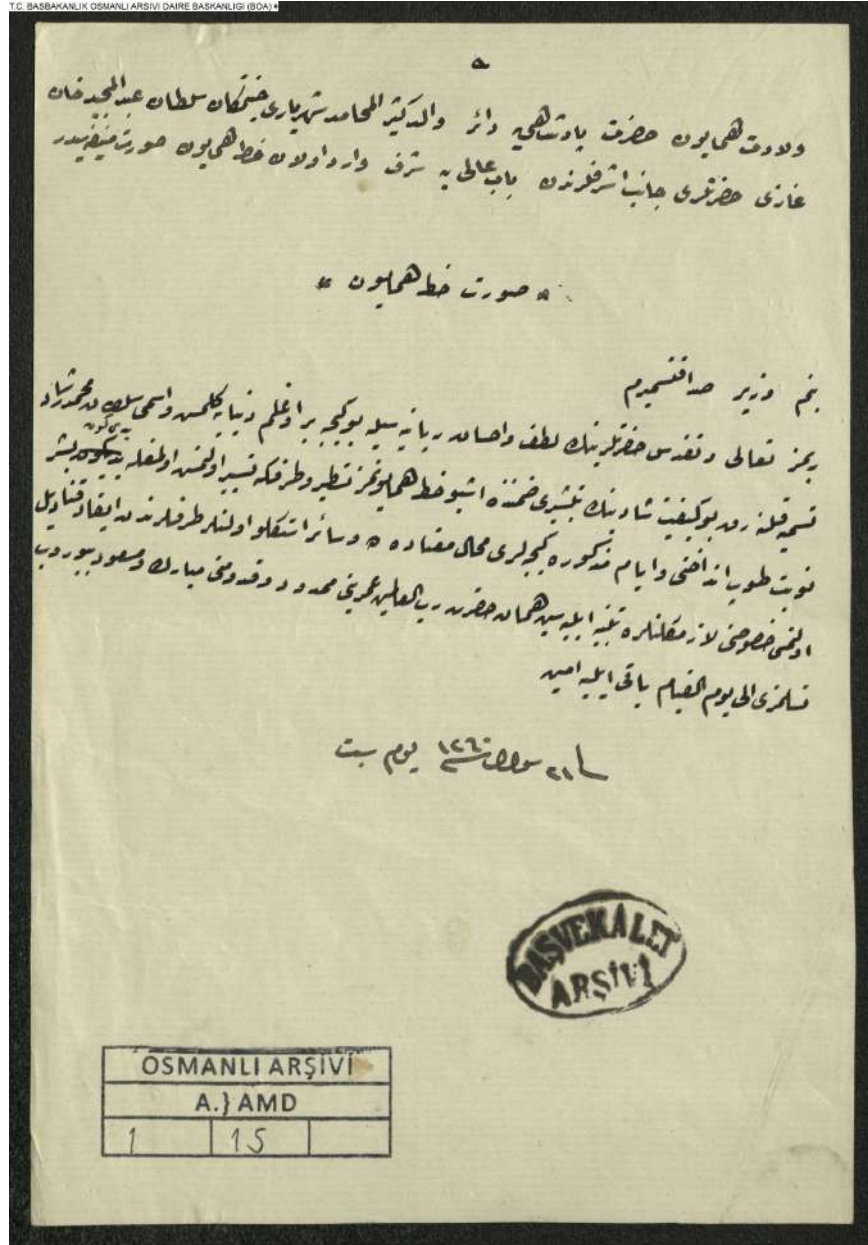 T.C. BASBAKANLIK OSMANLI ARSIVI DAIRE BASKANLIGI (BOA)
ولادت همایون حضرت پادشاهی‌یه دائر والد كثیر المحامد شهریاری جنتمكان سلطان عبد المجید خان
غازی حضرتلری جانب اشرفلرندن باب عالی یه شرف وارد اولان خط همایون صورت منیفه‌سیدر
صورت خط همایون
بنم وزیر صداقتسمیرم
ربمز تعالی وتقدس حضرتلرینك لطف واحسان ربانیه‌سیله بو كیجه بر اوغلم دنیایه كلمش واسمی سلطان محمد رشاد
تسمیه قلنه‌رق بو كیفیت شادینك تبشیری ضمننده اشبو خط همایونمز تسطیر وطرفكه تسییر اولنمش اولمغله یدی كون بشر
نوبت طوب انداختی وایام مذكوره كیجه‌لری محال معتاده ده وسائر استكلو اولنلر طرفلرندن ایقاد قنادیل
اولنمسی خصوصنی لازمكلنلره تنبیه ایلیه‌سین همان حضرت رب العالمین عمرینی ممدود وقدومنی مبارك ومسعود بیوروب
نسلمزی الی یوم القیام باقی ایلیه امین
٢١ شوال سنه ١٢٦٠ یوم سبت
BAŞVEKALET
ARŞİVİ
OSMANLI ARŞİVİ
A.} AMD
1 15